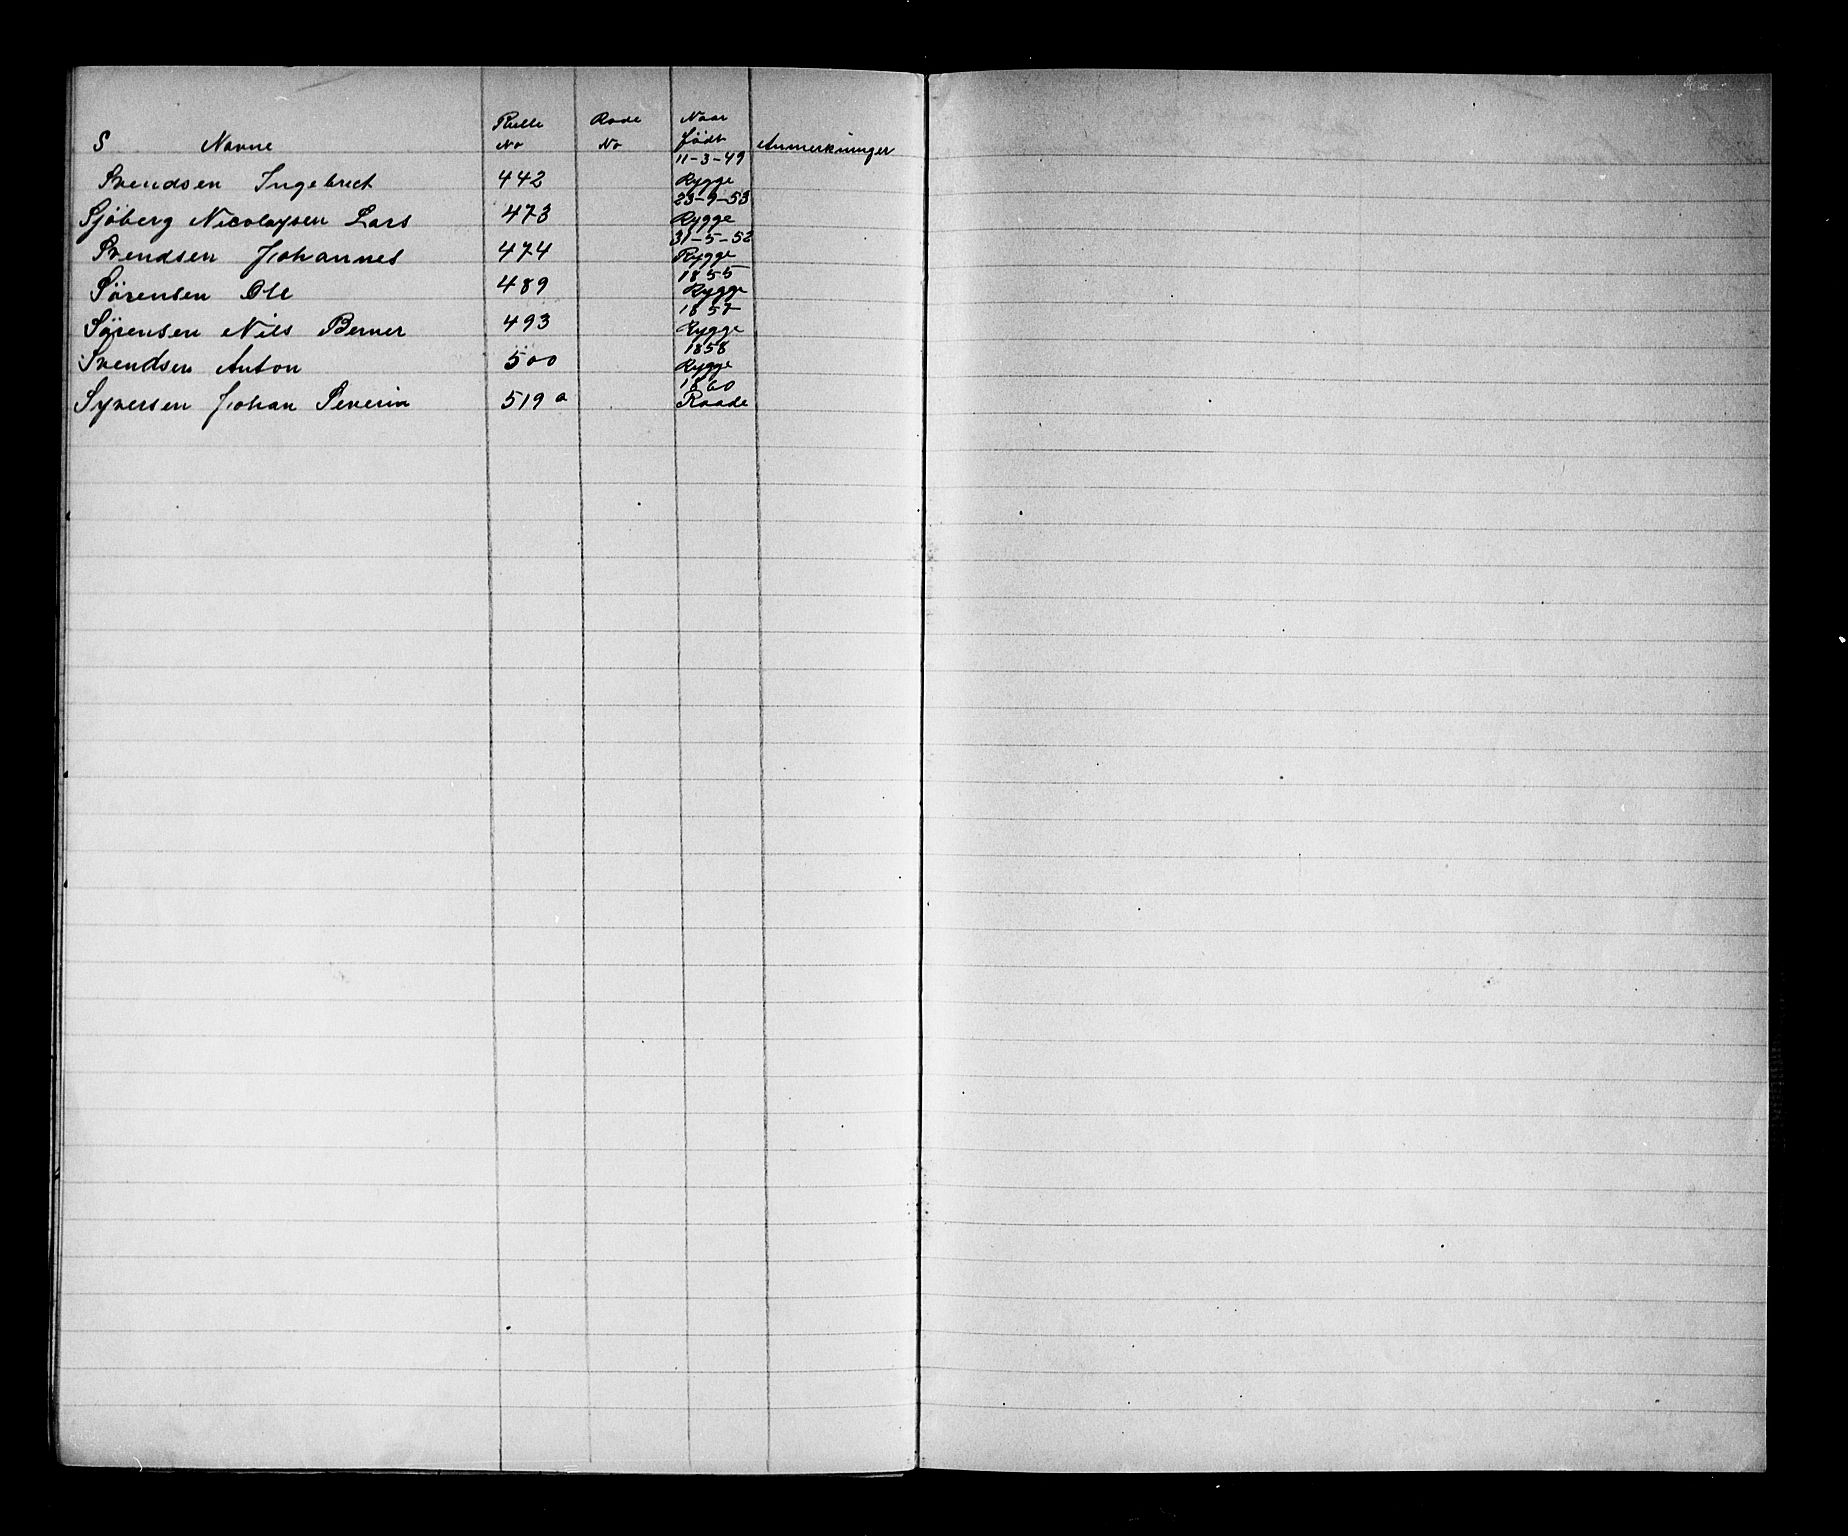 S Navne Rulle No Rode No Naar Født Anmerkninger
Svendsen Ingebrect 442 11-3-49 Rygge
Sjöberg Nicolaysen Lars 473 23-9-53 Rygge
Svendsen Johannes 474 31-5-52 Rygge
Sörensen Ole 489 1855 Rygge
Sörensen Nils Berner 493 1857 Rygge
Svendsen Anton 500 1858 Rygge
Syversen Johan Severin 519 a 1860 Raade